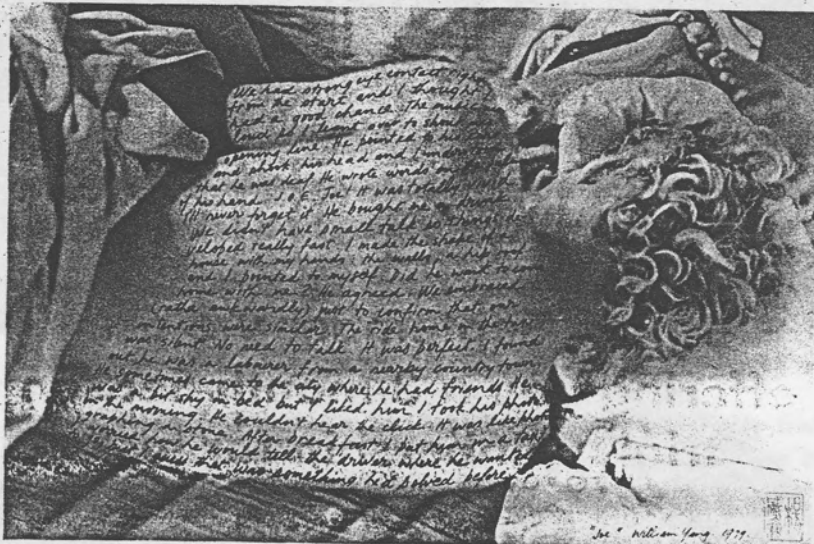 We had strong eye contact right
from the start and I thought I
had a good chance. The music was
loud so I leant over to shout my
opening line. He pointed to his ear
and shook his head and I understood
that he was deaf. He wrote words on the palm
of his hand. J.O.E. Joe! It was totally
I'll never forget it. He bought me a drink.
We didn't have small talk so things de-
veloped really fast. I made the shape of a
house with my hands, the walls, a hip roof
and I pointed to myself. Did he want to come
home with me? He agreed. We embraced
(rather awkwardly) just to confirm that our
intentions were similar. The ride home in the taxi
was silent. No need to talk. It was perfect. I found
out he was a labourer from a nearby country town.
He sometimes came to the city where he had friends. He
was a bit shy in bed but I liked him. I took his photo
in the morning. He couldn't hear the click. It was like phot-
graphing a stone. After breakfast I put him in a taxi
how he would tell the driver where he wanted
that was something he'd solved before.
"Joe" William Yang. 1979.